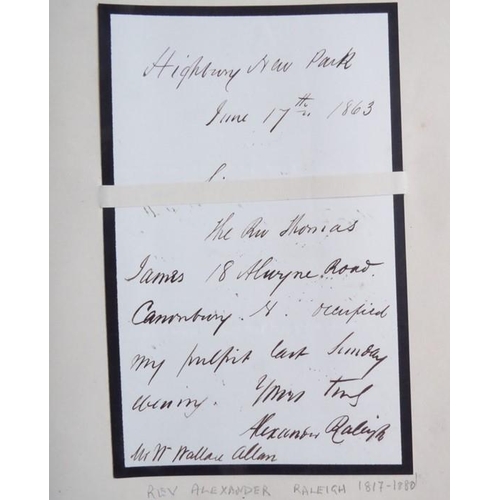 Highbury New Park
June 17th 1863
The Rev Thomas
James 18 Alwyne Road
Canonbury. N. occupied
my pulpit last Sunday
evening. Yours truly
Alexander Raleigh
Mr Wm Wallace Allan
REV ALEXANDER RALEIGH 1817-1880